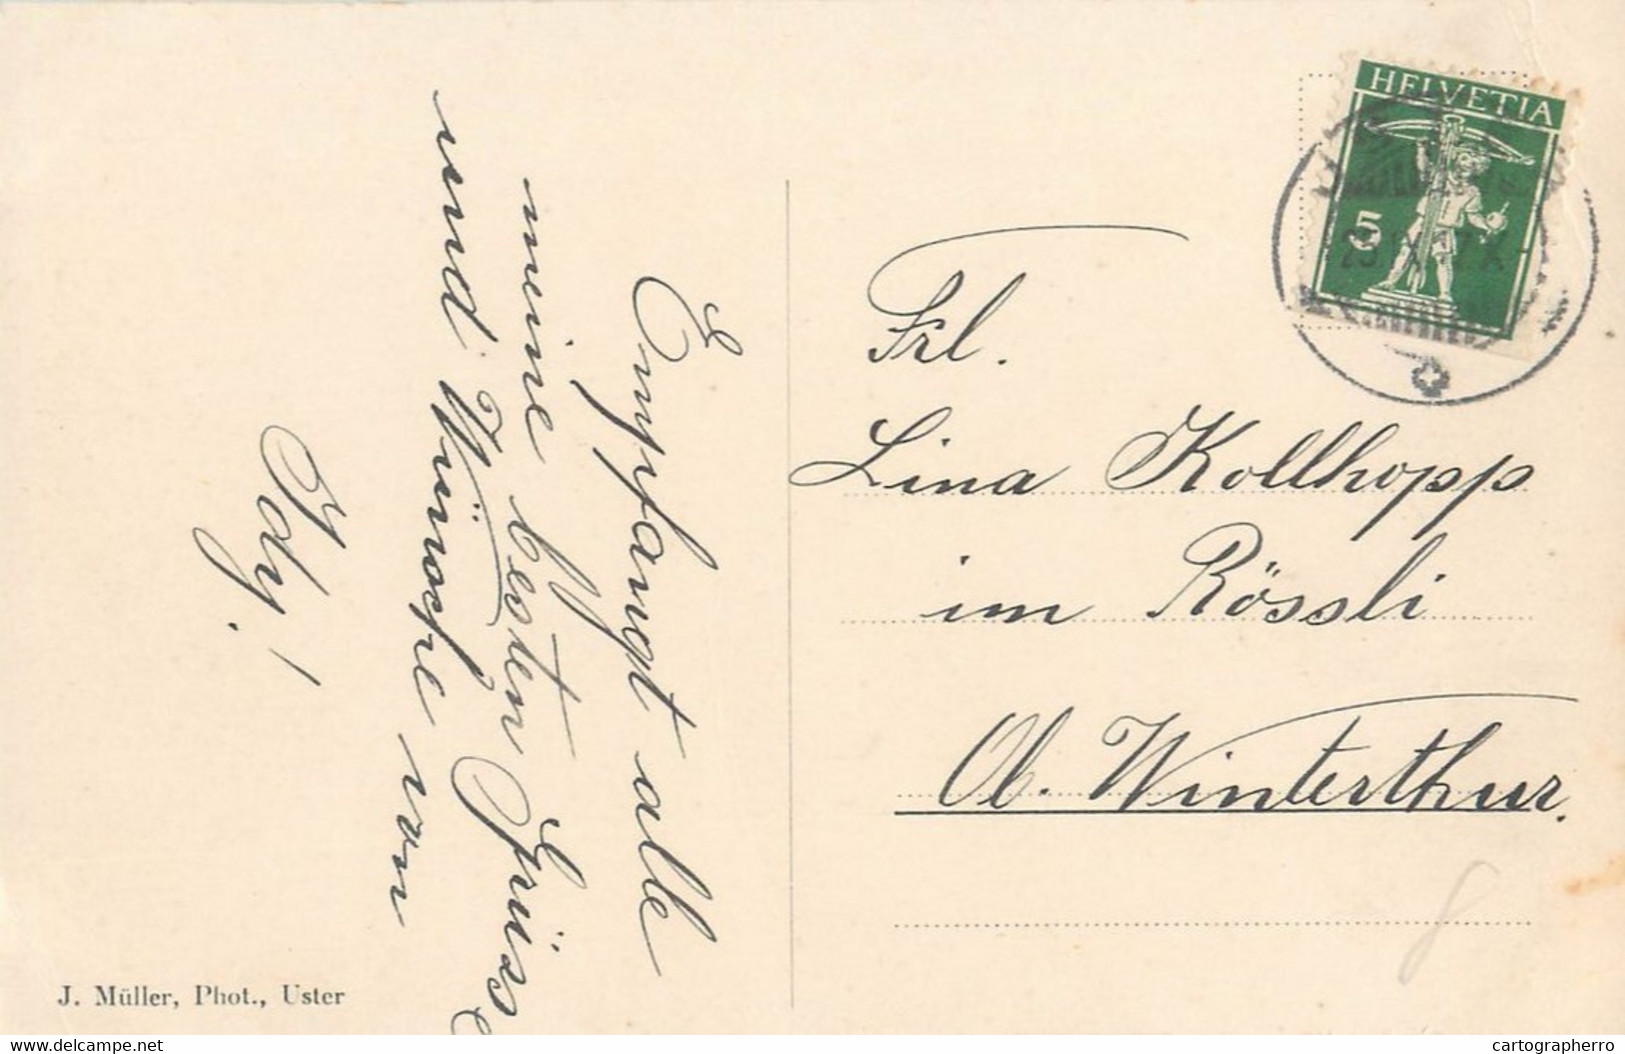 Empfangt alle
meine besten Grüsse
und Wünsche von
Idy!
J. Müller, Phot., Uster
HELVETIA
5
Frl.
Lina Kollhopp
im Rössli
Ob. Winterthur.
8
www.delcampe.net
cartographerro